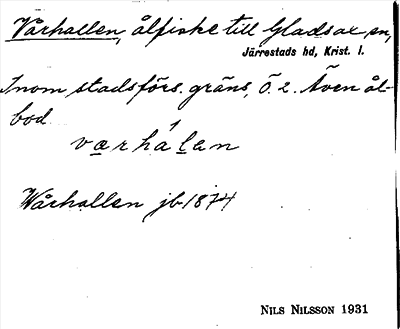 Vårhallen, ålfiske till Gladsax sn,
Järrestads hd, Krist. l.
Inom stadsförs. gräns, Ö. 2. Även ål-
bod
varhálan
Wårhallen jb 1874
NILS NILSSON 1931